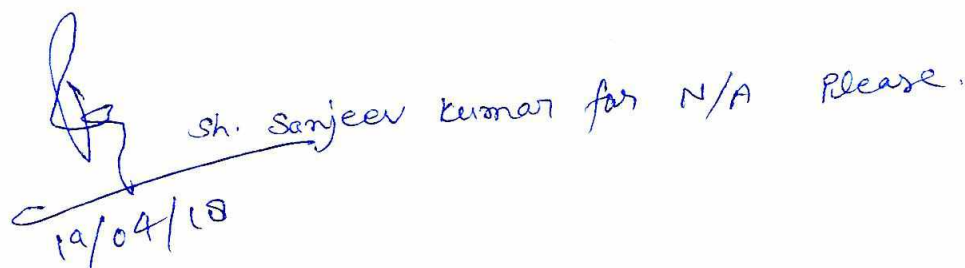 Sh. Sanjeev Kumar for N/A Please.
19/04/18